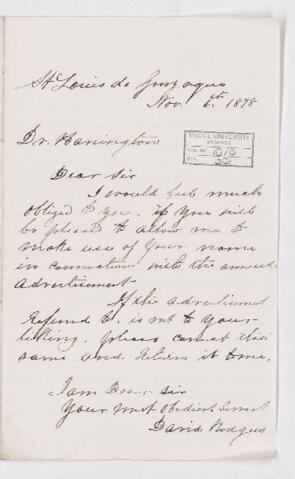 St Louis de Gonzague
Nov 6th 1878
Dr. Harrington
McGILL UNIVERSITY
ARCHIVES
ACC. NO.
REF.
Dear Sir
I would feel much
obliged to you if you will
be pleased to allow me to
make use of your name
in connection with the annexed
advertisement
If the advertisement
referred to. is not to your
liking. please correct the
same and return it to me.
I am Dear Sir
Your most Obedient Servant
David Rodgers